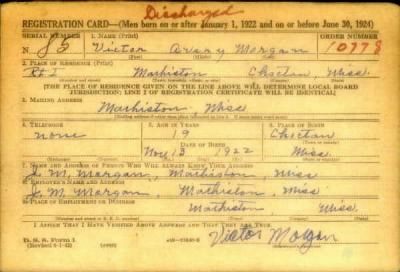 Discharged
REGISTRATION CARD—(Men born on or after January 1, 1922 and on or before June 30, 1924)
SERIAL NUMBER 1. NAME (Print) ORDER NUMBER
N 85 Victor Avary Morgan 10778
(First) (Middle) (Last)
2. PLACE OF RESIDENCE (Print)
Rt. 1 Mathiston Choctaw Miss.
[THE PLACE OF RESIDENCE GIVEN ON THE LINE ABOVE WILL DETERMINE LOCAL BOARD
JURISDICTION; LINE 2 OF REGISTRATION CERTIFICATE WILL BE IDENTICAL]
3. MAILING ADDRESS
Mathiston Miss
4. TELEPHONE 5. AGE IN YEARS 6. PLACE OF BIRTH
none 19 Choctaw
DATE OF BIRTH
Nov. 3 1922 Miss.
7. NAME AND ADDRESS OF PERSON WHO WILL ALWAYS KNOW YOUR ADDRESS
J. M. Morgan, Mathiston, Miss
8. EMPLOYER'S NAME AND ADDRESS
J. M. Morgan, Mathiston Miss
9. PLACE OF EMPLOYMENT OR BUSINESS
Mathiston, Miss.
I AFFIRM THAT I HAVE VERIFIED ABOVE ANSWERS AND THAT THEY ARE TRUE.
D. S. S. Form 1
Victor Morgan